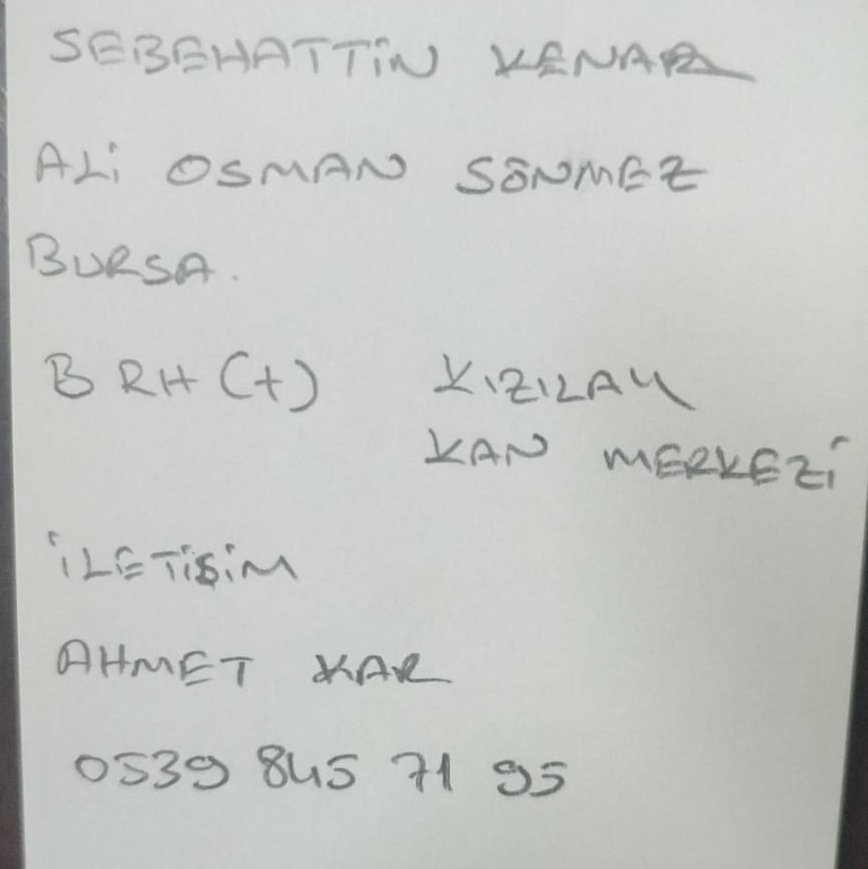 SEBEHATTİN KENAR
ALİ OSMAN SÖNMEZ
BURSA.
B RH (+) KIZILAY
KAN MERKEZİ
İLETİŞİM
AHMET KAR
0539 845 71 95